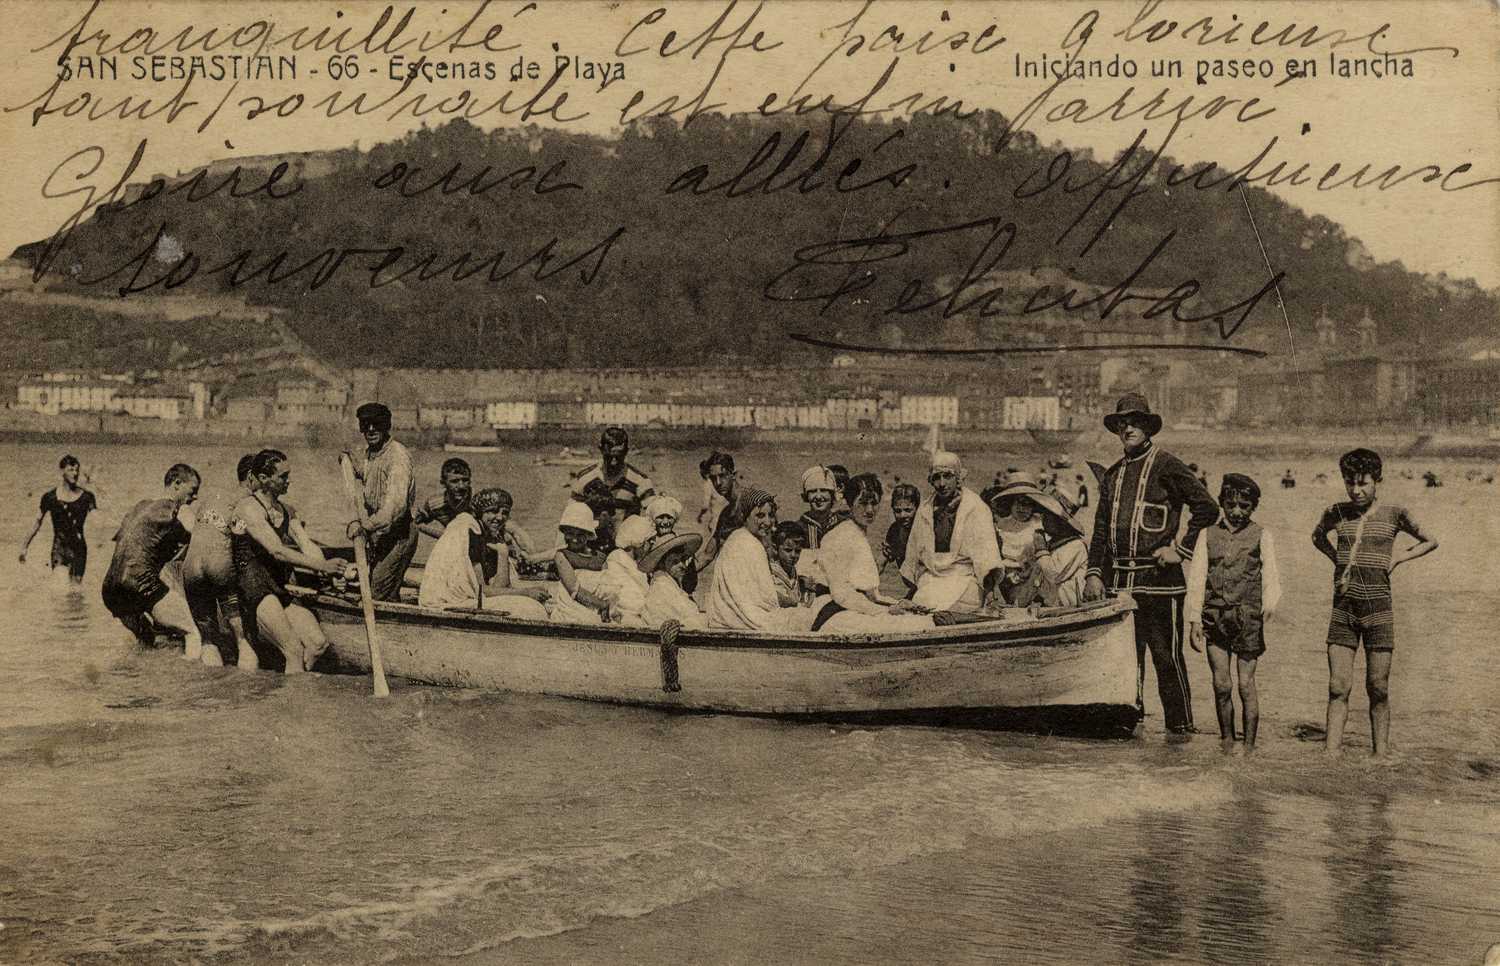 tranquillité. Cette paix glorieuse
SAN SEBASTIAN - 66 - Escenas de Playa
Iniciando un paseo en lancha
tant souhaité est enfin arrivé
Gloire aux alliés. Affectueux
souvenirs Felicitas
JESUS HERM